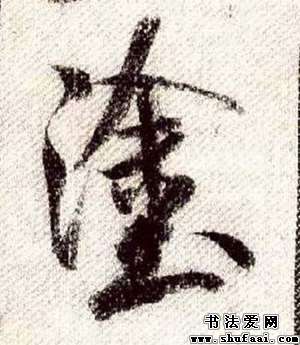 塗
书法爱网
www.shufaai.com